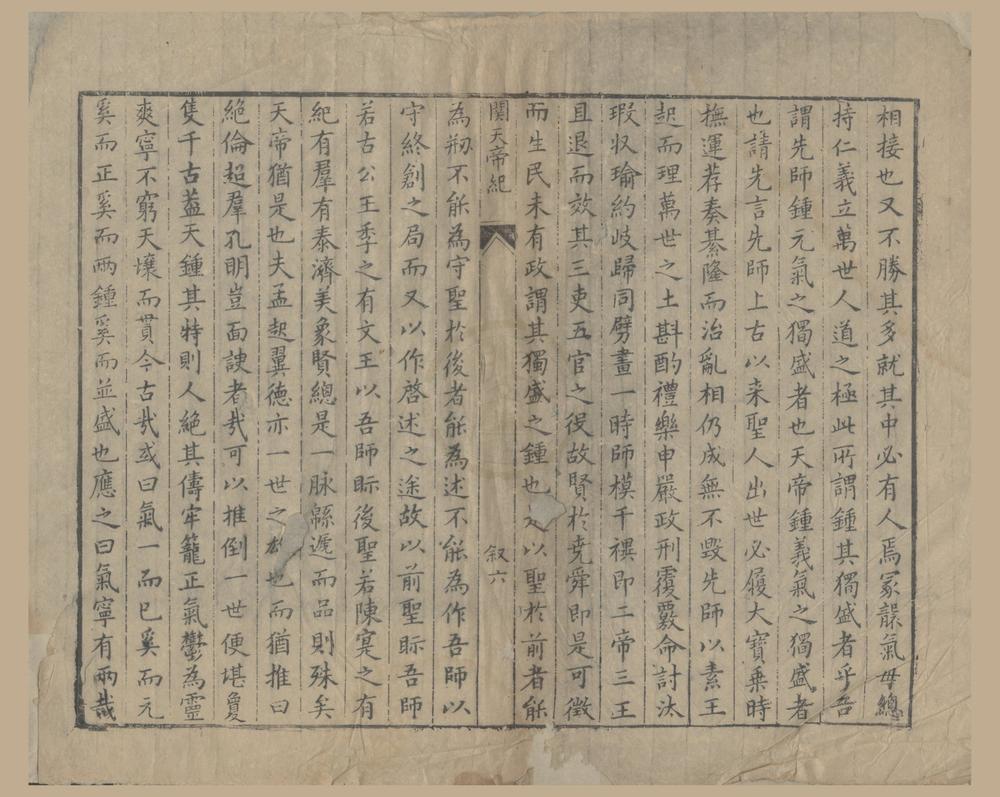 相接也又不勝其多就其中必有人焉冢韞氣母總
持仁義立萬世人道之極此所謂鍾其獨盛者乎吾
謂先師鍾元氣之獨盛者也天帝鍾義氣之獨盛者
也請先言先師上古以来聖人出世必履大寶乗時
撫運荐奏綦隆而治亂相仍成無不毀先師以素王
起而理萬世之土斟酌禮樂申嚴政刑覆覈命討汰
瑕収瑜約歧歸同劈畫一時師模千禩即二帝三王
且退而效其三吏五官之役故賢扵堯舜即是可徵
而生民未有政謂其獨盛之鍾也以聖扵前者能
關天帝紀
叙六
為刱不能為守聖扵後者能為述不能為作吾師以
守終創之局而又以作啓述之途故以前聖眎吾師
若古公王季之有文王以吾師眎後聖若陳寔之有
紀有羣有泰濟美象賢總是一脉綿遞而品則殊矣
天帝猶是也夫孟起翼德亦一世之也而猶推曰
絶倫超羣孔明豈面諛者㢤可以推倒一世便堪敻
隻千古葢天鍾其特則人絶其儔牢籠正氣鬱為靈
爽寧不窮天壤而貫今古㢤或曰氣一而已奚而元
奚而正奚而兩鍾奚而並盛也應之曰氣寧有兩哉